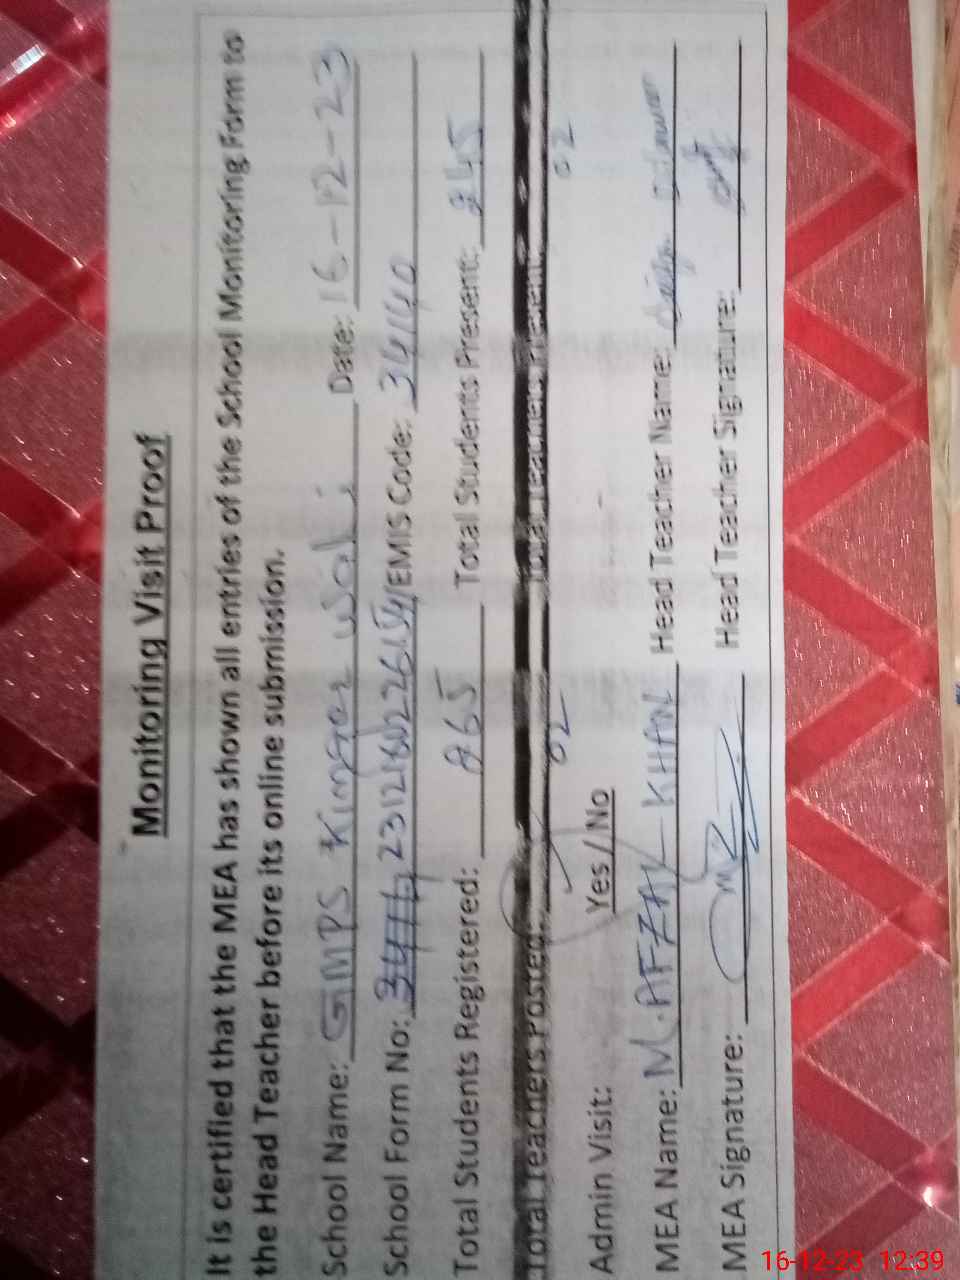 Monitoring Visit Proof
It is certified that the MEA has shown all entries of the School Monitoring Form to
the Head Teacher before its online submission.
School Name: GMPS wali Date: 16-12-23
School Form No: EMIS Code: 34140
Total Students Registered: 265 Total Students Present: 245
Total Teachers Posted: 02 Total Teachers Present: 02
Admin Visit: Yes/No
MEA Name: M.AFZAL KHAN Head Teacher Name:
MEA Signature: Head Teacher Signature:
16-12-23 12:39